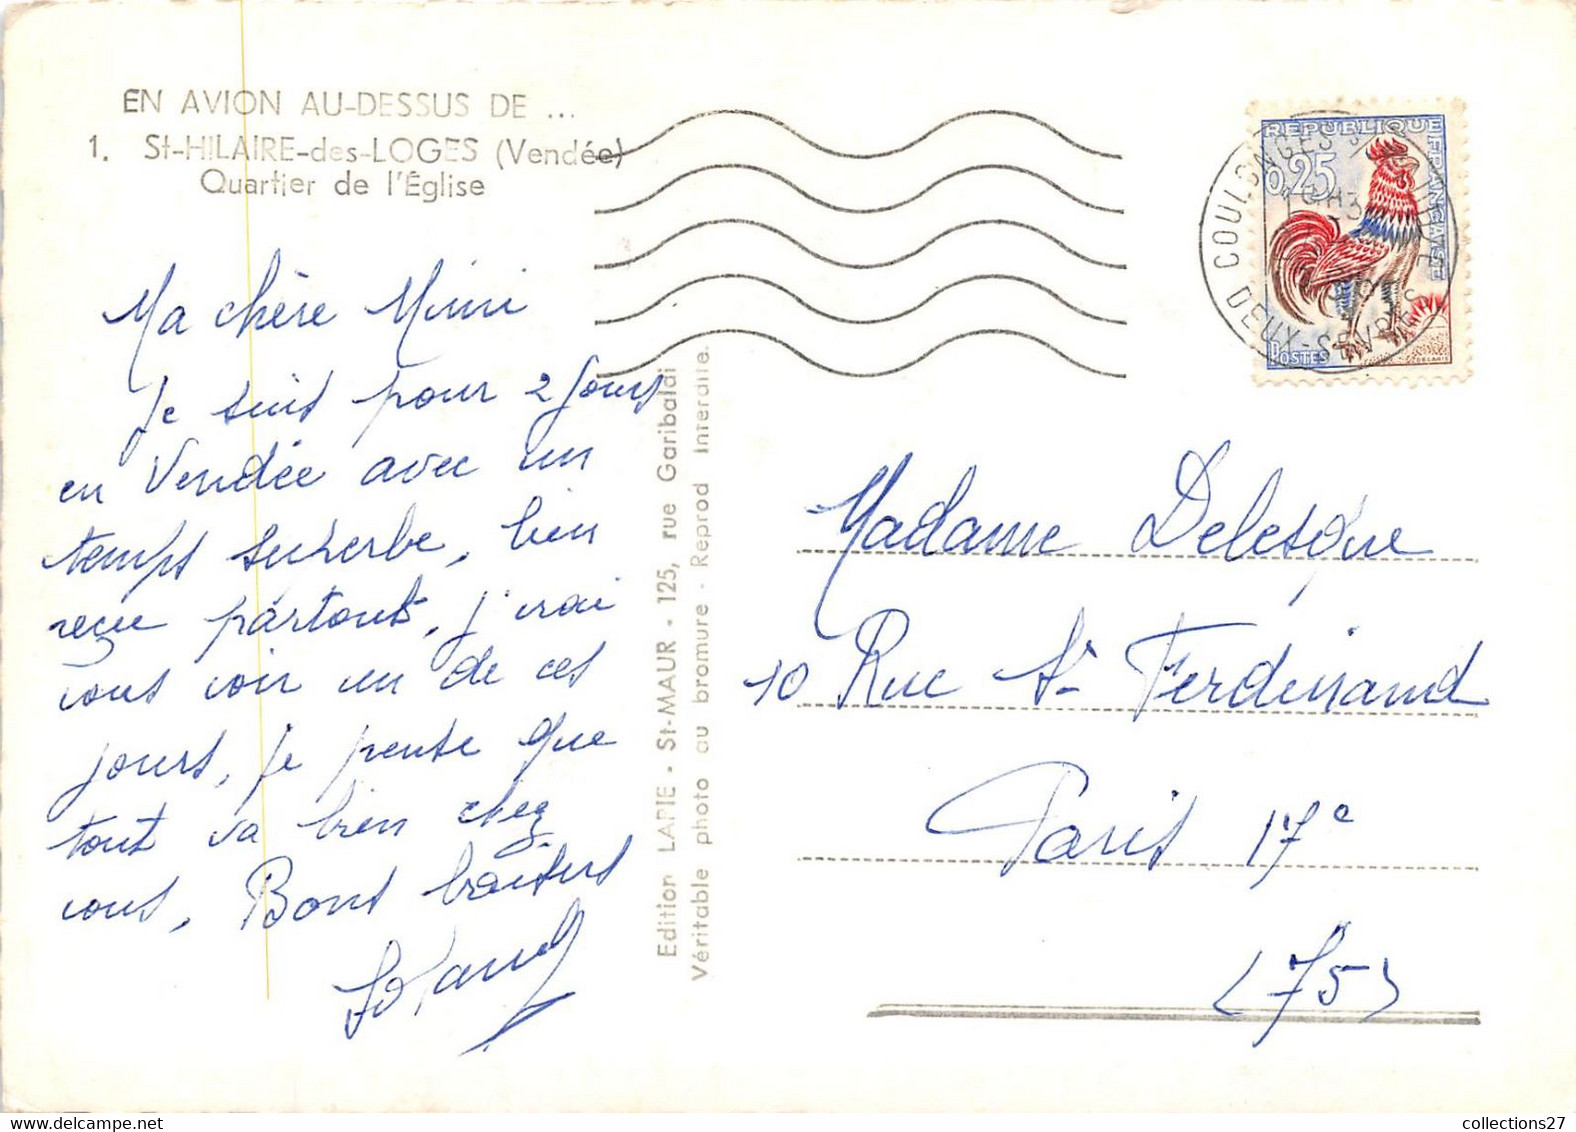 EN AVION AU-DESSUS DE ...
1. St-HILAIRE-des-LOGES (Vendée)
Quartier de l'Église
Ma chère Mimi
Je suis pour 2 jours
en Vendée avec un
temps superbe, bien
reçue partout, j'irai
vous voir un de ces
jours, je pense que
tout va bien chez
vous, Bons baisers
Edition LAPIE - St-MAUR - 125, rue Garibaldi
Véritable photo au bromure - Reprod Interdite.
REPUBLIQUE FRANÇAISE
0,25
POSTES
DECARIS
COULONGES S/
DEUX-SEVRES
Madame Delesque
10 Rue St Ferdinand
Paris 17e
(75)
collections27